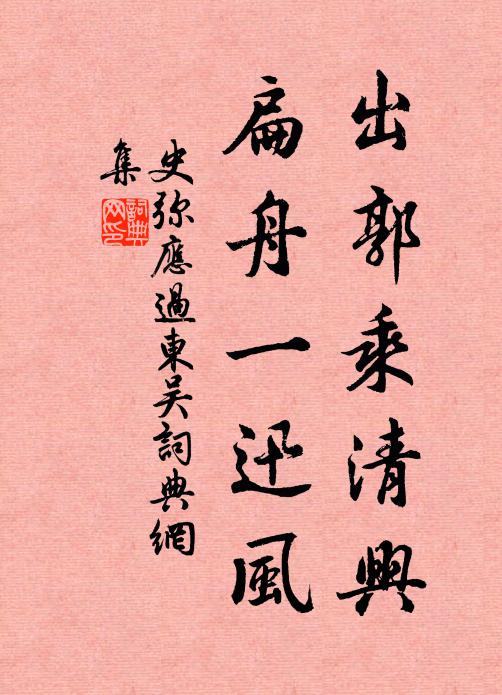 出郭乘清興
扁舟一迅風
史弥應過東吴詞典網
集
詞典
网印